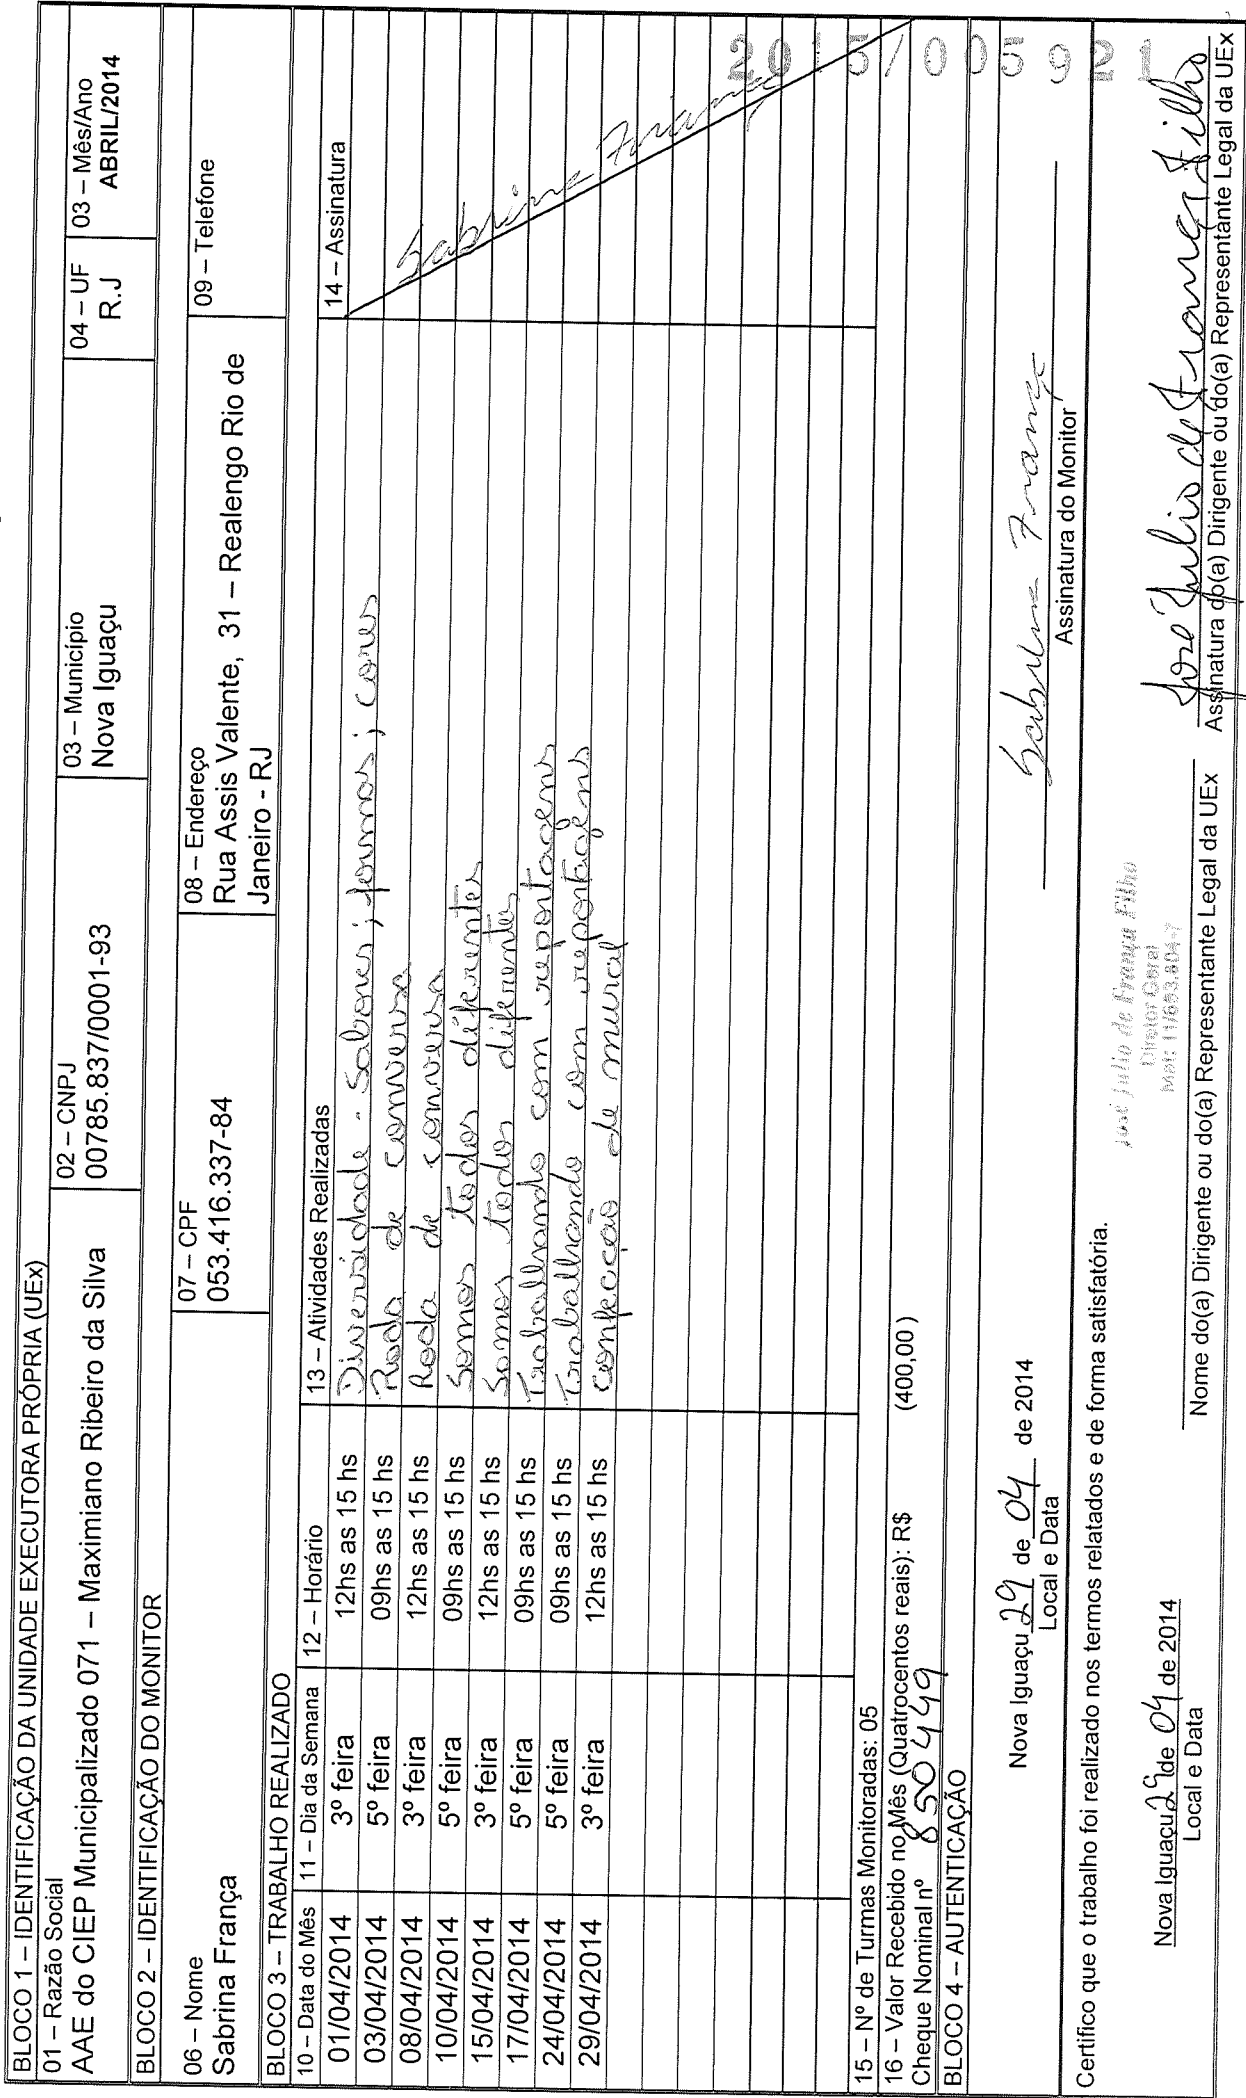 BLOCO 1 – IDENTIFICAÇÃO DA UNIDADE EXECUTORA PRÓPRIA (UEx)
01 – Razão Social
AAE do CIEP Municipalizado 071 – Maximiano Ribeiro da Silva
02 – CNPJ
00785.837/0001-93
03 – Município
Nova Iguaçu
04 – UF
R.J
03 – Mês/Ano
ABRIL/2014
BLOCO 2 – IDENTIFICAÇÃO DO MONITOR
06 – Nome
Sabrina França
07 – CPF
053.416.337-84
08 – Endereço
Rua Assis Valente, 31 – Realengo Rio de
Janeiro - RJ
09 – Telefone
BLOCO 3 – TRABALHO REALIZADO
10 – Data do Mês 11 – Dia da Semana 12 – Horário 13 – Atividades Realizadas 14 – Assinatura
01/04/2014 3º feira 12hs as 15 hs Diversidade - Sabores; formas; cores
03/04/2014 5º feira 09hs as 15 hs Roda de conversa
08/04/2014 3º feira 12hs as 15 hs Roda de conversa
10/04/2014 5º feira 09hs as 15 hs Somos todos diferentes
15/04/2014 3º feira 12hs as 15 hs Somos todos diferentes
17/04/2014 5º feira 09hs as 15 hs Trabalhando com reportagens
24/04/2014 5º feira 09hs as 15 hs Trabalhando com reportagens
29/04/2014 3º feira 12hs as 15 hs confecção de mural
Sabrina França
2015/005921
15 – Nº de Turmas Monitoradas: 05
16 – Valor Recebido no Mês (Quatrocentos reais): R$ (400,00 )
Cheque Nominal nº 850449
BLOCO 4 – AUTENTICAÇÃO
Nova Iguaçu 29 de 04 de 2014
Local e Data
Sabrina França
Assinatura do Monitor
Certifico que o trabalho foi realizado nos termos relatados e de forma satisfatória.
José Julio de França Filho
Diretor Geral
Mat: 11/693.804-7
Nova Iguaçu 29 de 04 de 2014
Local e Data
Nome do(a) Dirigente ou do(a) Representante Legal da UEx
José Julio de França Filho
Assinatura do(a) Dirigente ou do(a) Representante Legal da UEx